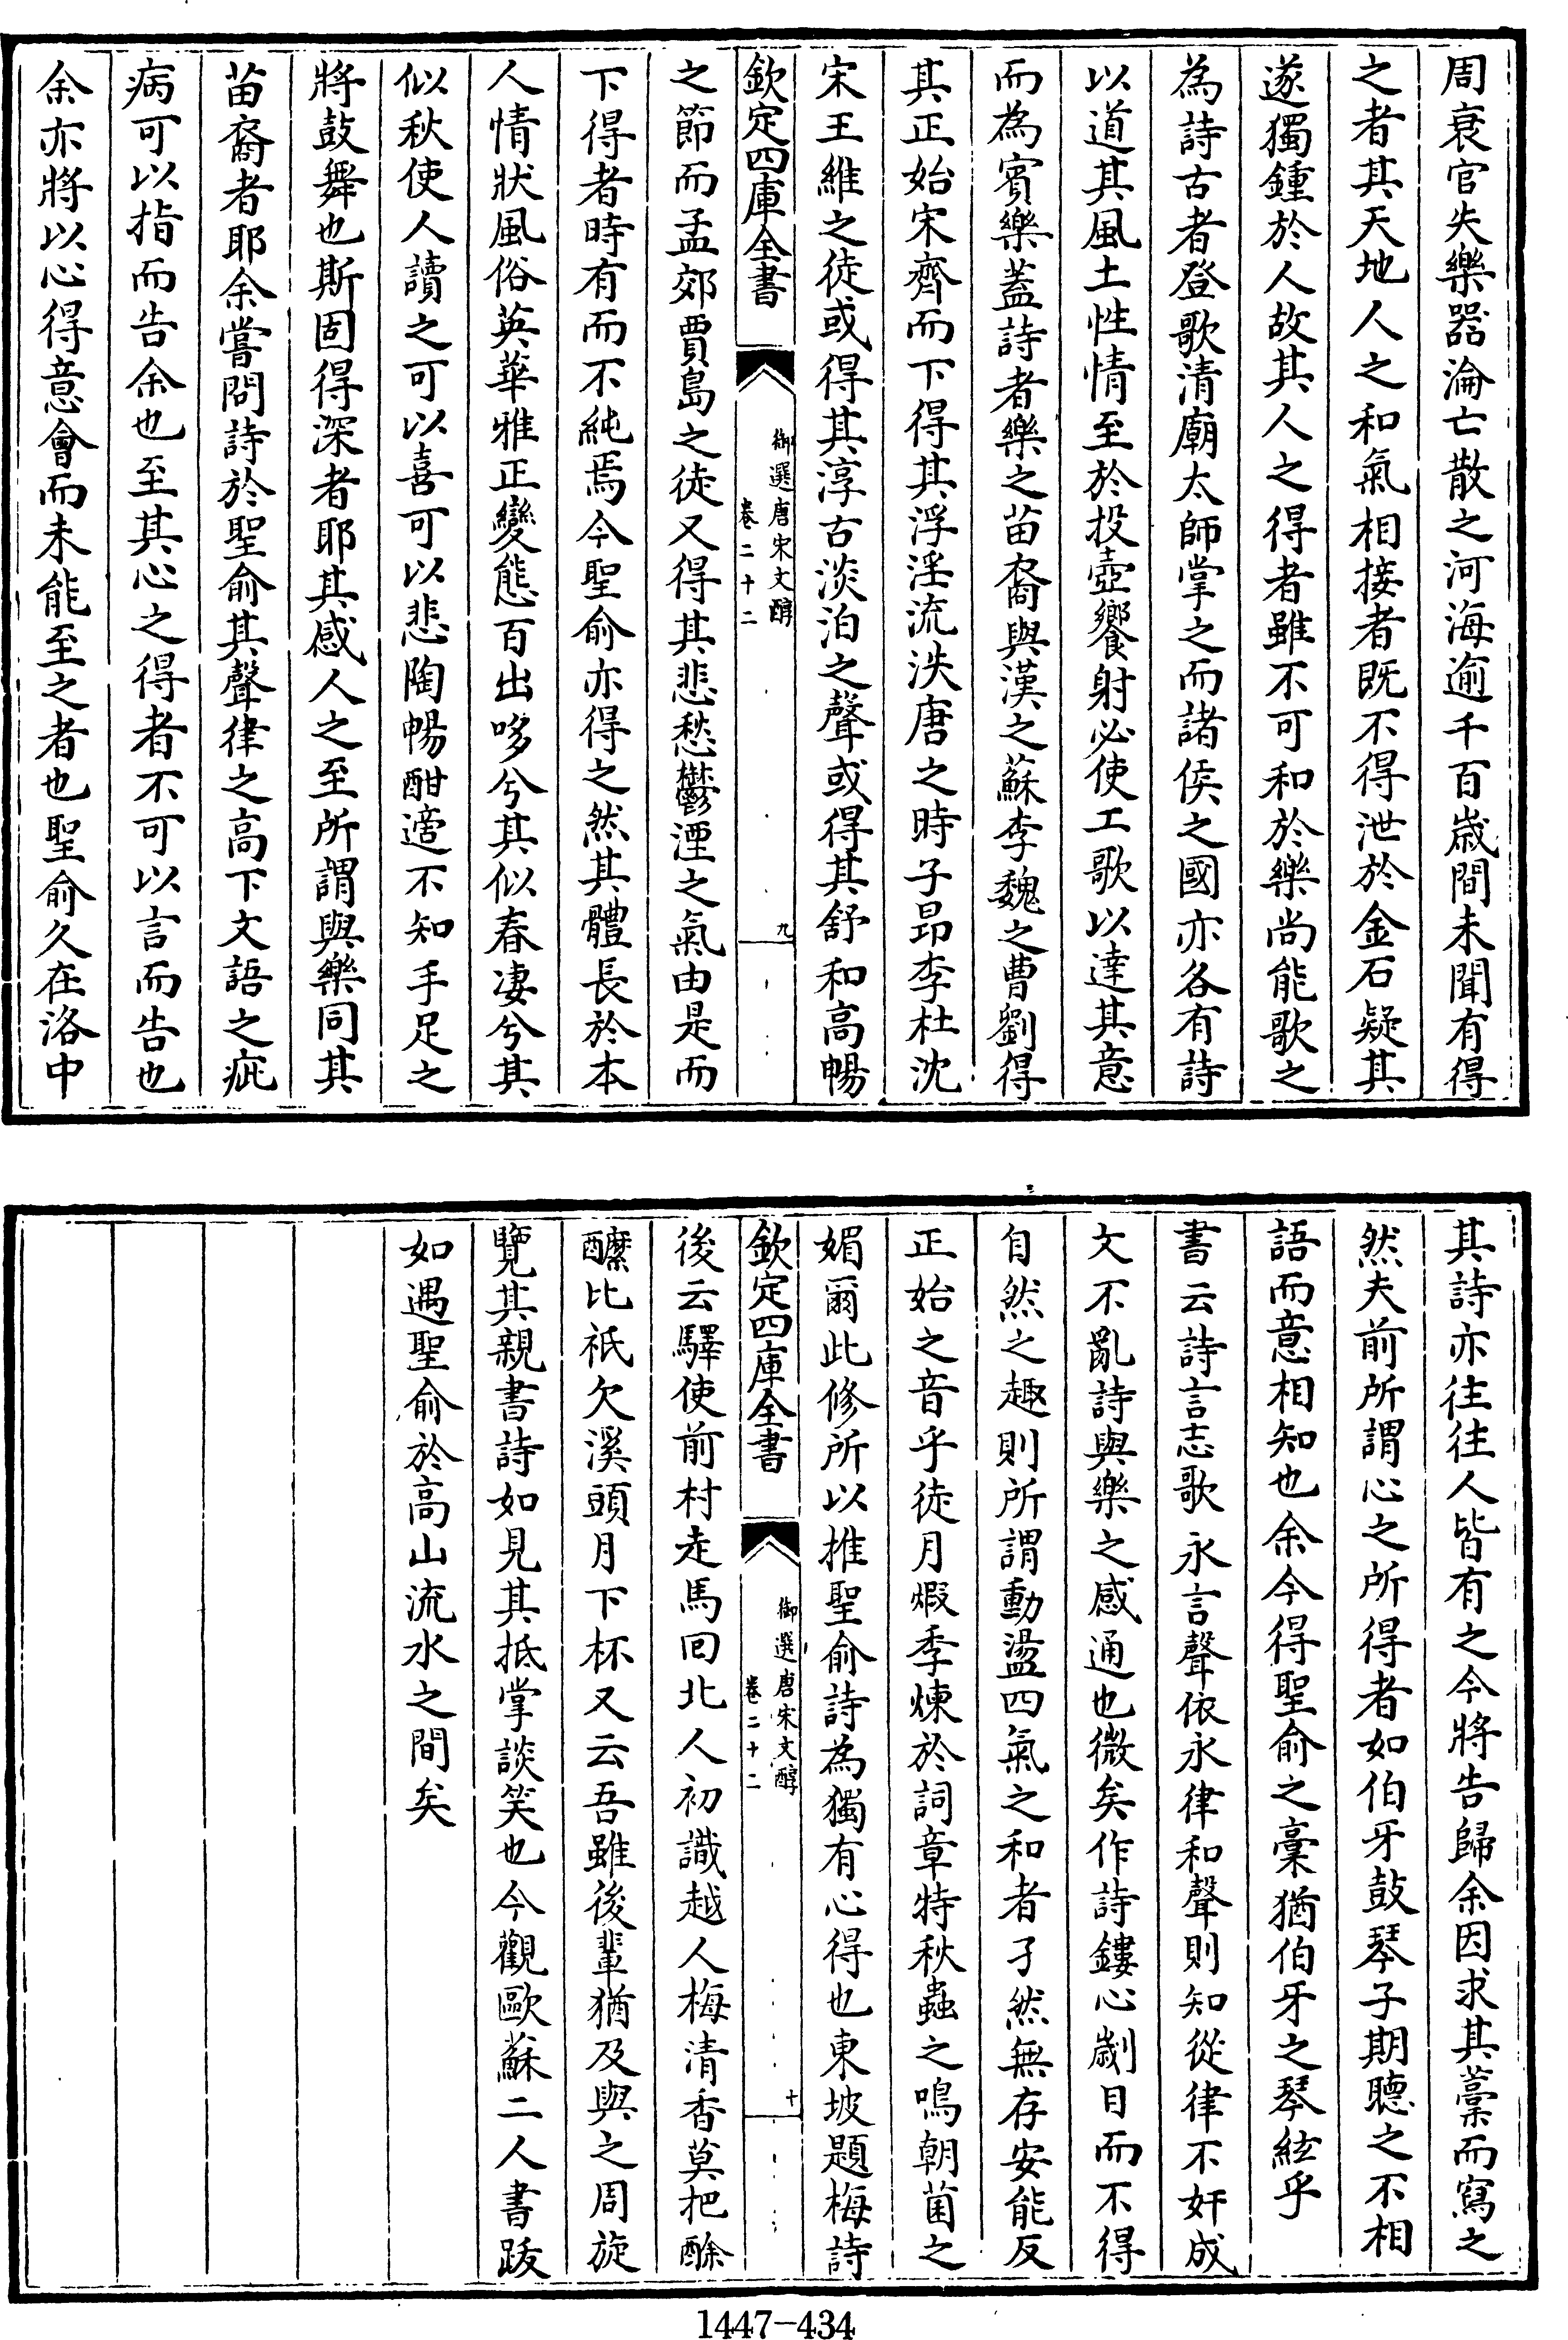 周衰官失樂器淪亡散之河海逾千百歲間未聞有得
之者其天地人之和氣相接者既不得泄於金石疑其
遂獨鍾於人故其人之得者雖不可和於樂尚能歌之
為詩古者登歌清廟太師掌之而諸侯之國亦各有詩
以道其風土性情至於投壺饗射必使工歌以達其意
而為賓樂蓋詩者樂之苗裔與漢之蘇李魏之曹劉得
其正始宋齊而下得其浮淫流泆唐之時子昂李杜沈
宋王維之徒或得其淳古淡泊之聲或得其舒和高暢
欽定四庫全書
御選唐宋文醇
卷二十二
九
之節而孟郊賈島之徒又得其悲愁鬱湮之氣由是而
下得者時有而不純焉今聖俞亦得之然其體長於本
人情狀風俗英華雅正變態百出哆兮其似春凄兮其
似秋使人讀之可以喜可以悲陶暢酣適不知手足之
將鼓舞也斯固得深者耶其感人之至所謂與樂同其
苗裔者耶余嘗問詩於聖俞其聲律之高下文語之疵
病可以指而告余也至其心之得者不可以言而告也
余亦將以心得意會而未能至之者也聖俞久在洛中
其詩亦往往人皆有之今將告歸余因求其藁而寫之
然夫前所謂心之所得者如伯牙鼓琴子期聽之不相
語而意相知也余今得聖俞之稾猶伯牙之琴絃乎
書云詩言志歌永言聲依永律和聲則知從律不奸成
文不亂詩與樂之感通也微矣作詩鏤心劌目而不得
自然之趣則所謂動盪四氣之和者孑然無存安能反
正始之音乎徒月煆季煉於詞章特秋蟲之鳴朝菌之
媚爾此修所以推聖俞詩為獨有心得也東坡題梅詩
欽定四庫全書
御選唐宋文醇
卷二十二
十
後云驛使前村走馬回北人初識越人梅清香莫把酴
醾比祇欠溪頭月下杯又云吾雖後輩猶及與之周旋
覽其親書詩如見其抵掌談笑也今觀歐蘇二人書跋
如遇聖俞於高山流水之間矣
1447-434